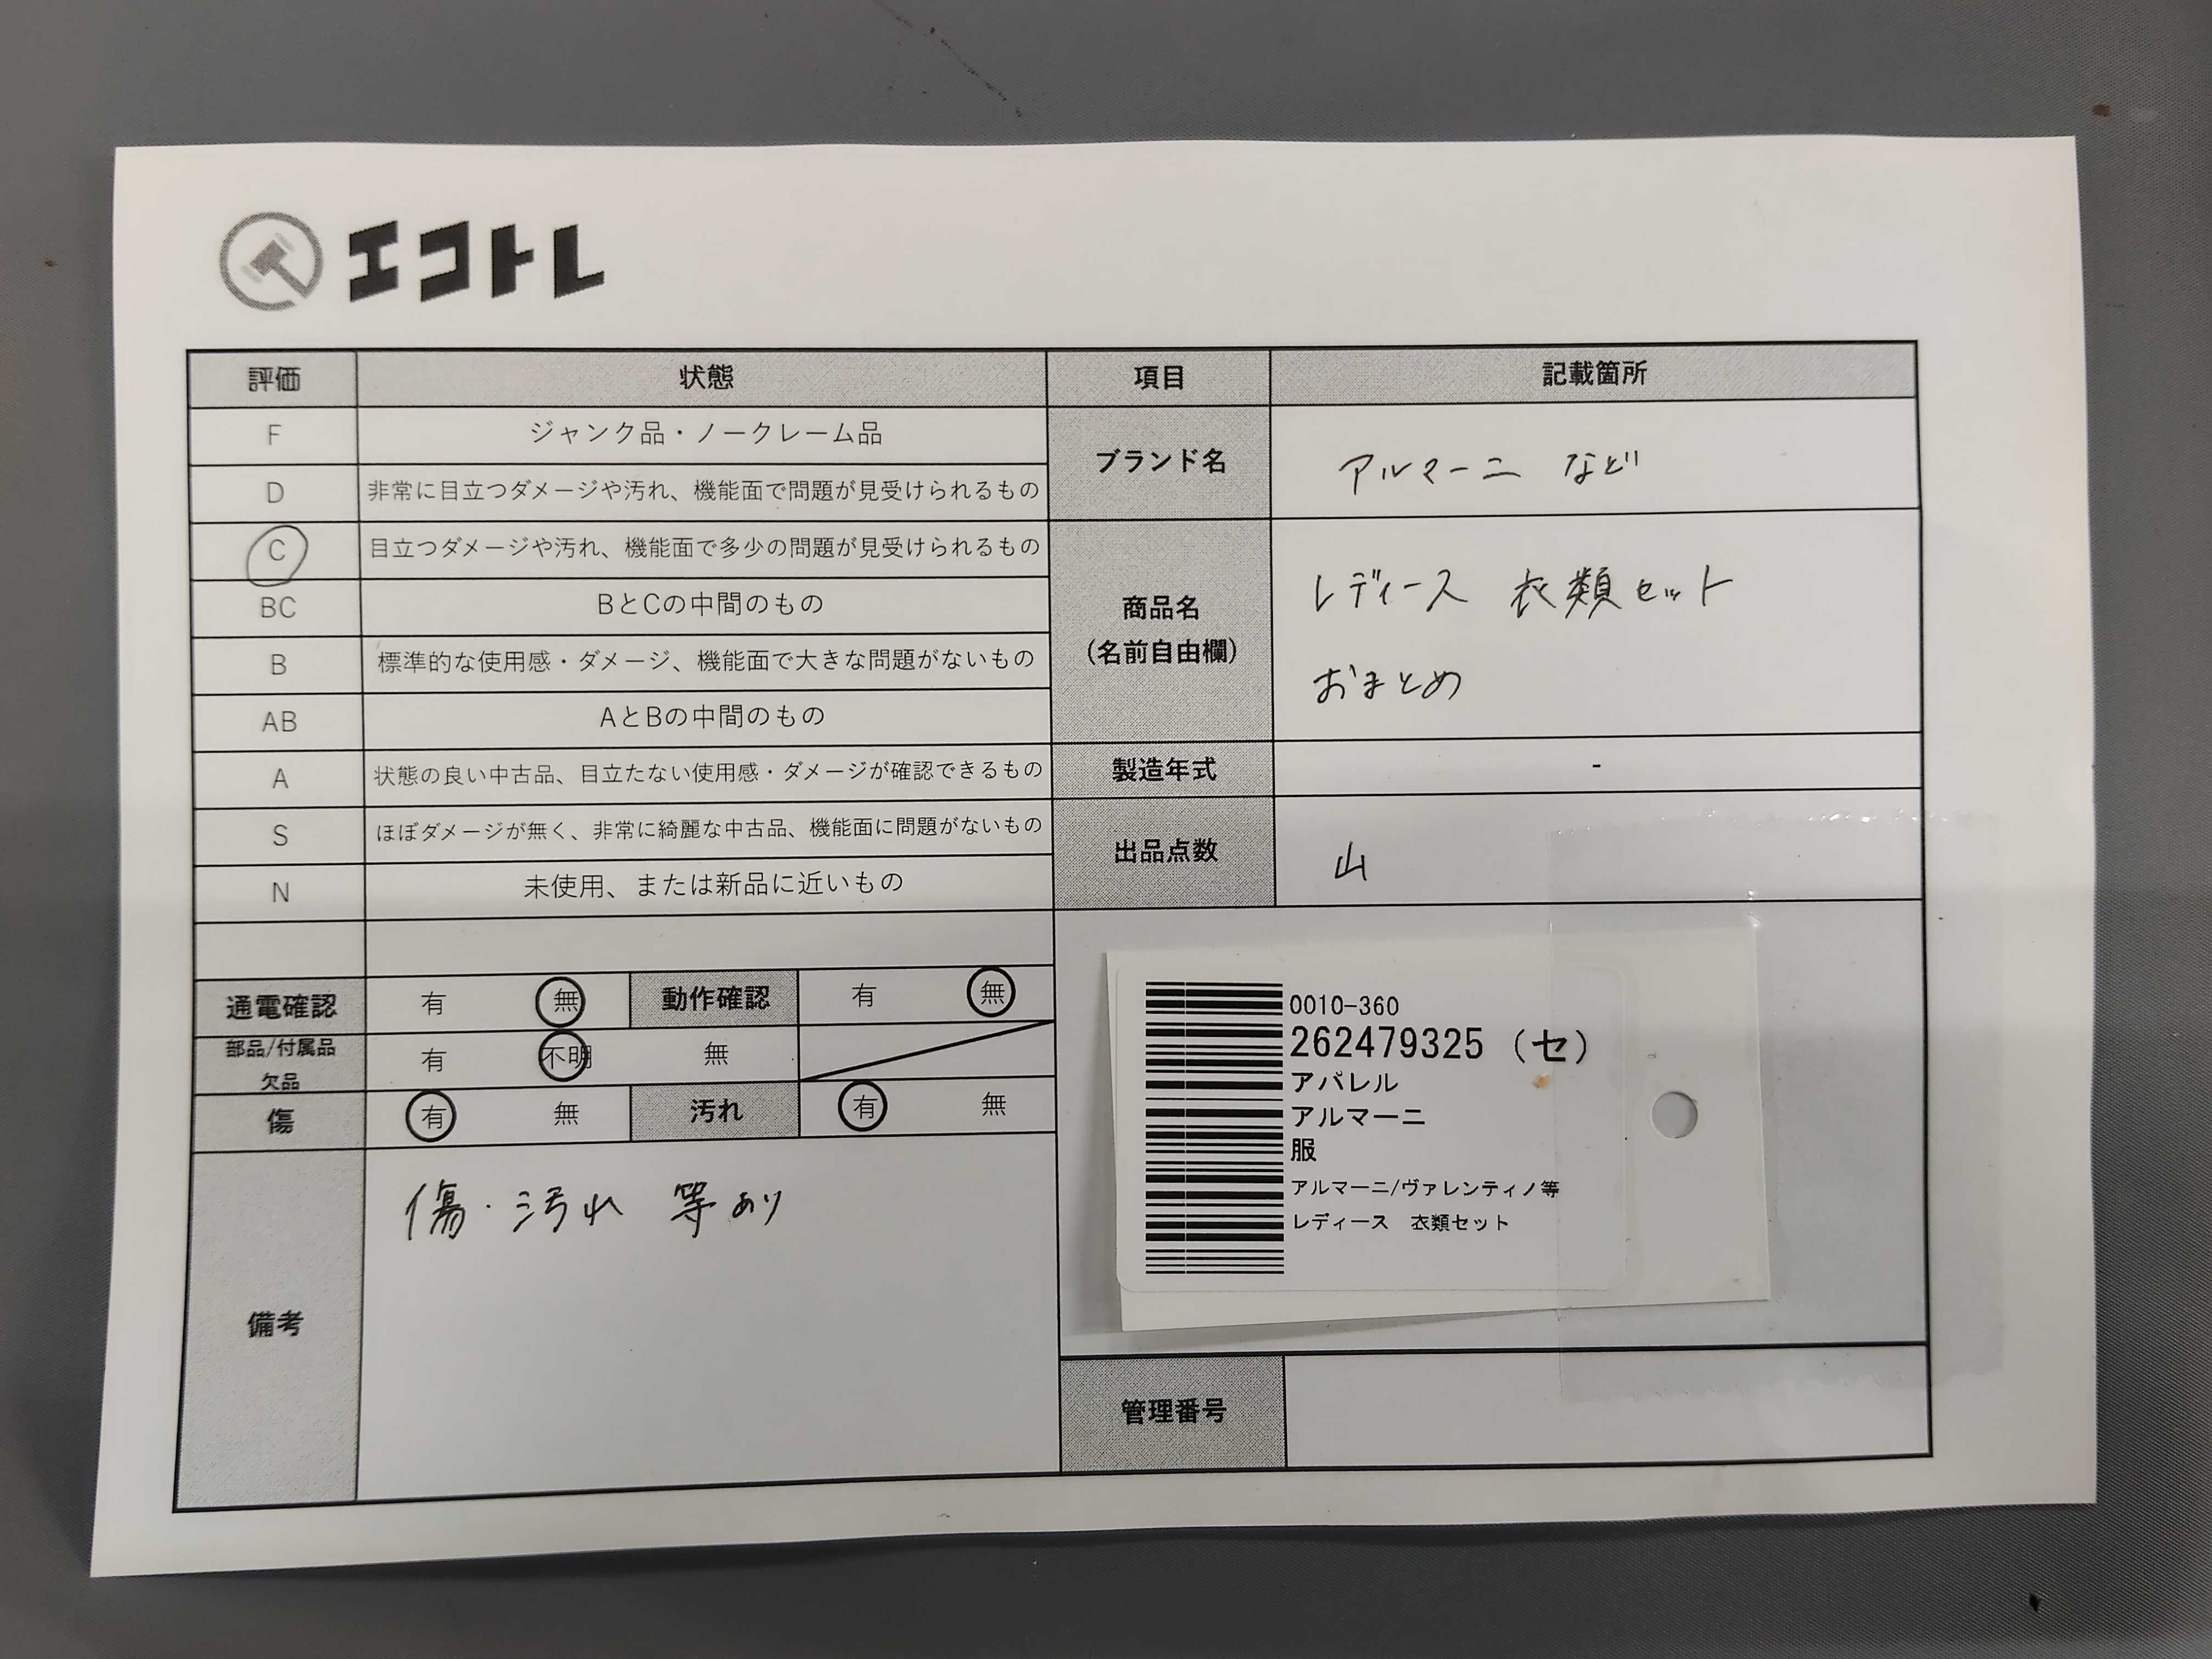 エコトレ
評価 状態 項目 記載箇所
F ジャンク品・ノークレーム品
D 非常に目立つダメージや汚れ、機能面で問題が見受けられるもの
ブランド名 アルマーニ など
C 目立つダメージや汚れ、機能面で多少の問題が見受けられるもの
BC BとCの中間のもの
B 標準的な使用感・ダメージ、機能面で大きな問題がないもの
AB AとBの中間のもの
商品名
(名前自由欄)
レディース 衣類セット
おまとめ
A 状態の良い中古品、目立たない使用感・ダメージが確認できるもの
製造年式 -
S ほぼダメージが無く、非常に綺麗な中古品、機能面に問題がないもの
N 未使用、または新品に近いもの
出品点数 山
通電確認 有 無 動作確認 有 無
部品/付属品
欠品
有 不明 無
傷 有 無 汚れ 有 無
備考
傷・汚れ 等あり
0010-360
262479325 (セ)
アパレル
アルマーニ
服
アルマーニ/ヴァレンティノ等
レディース 衣類セット
管理番号